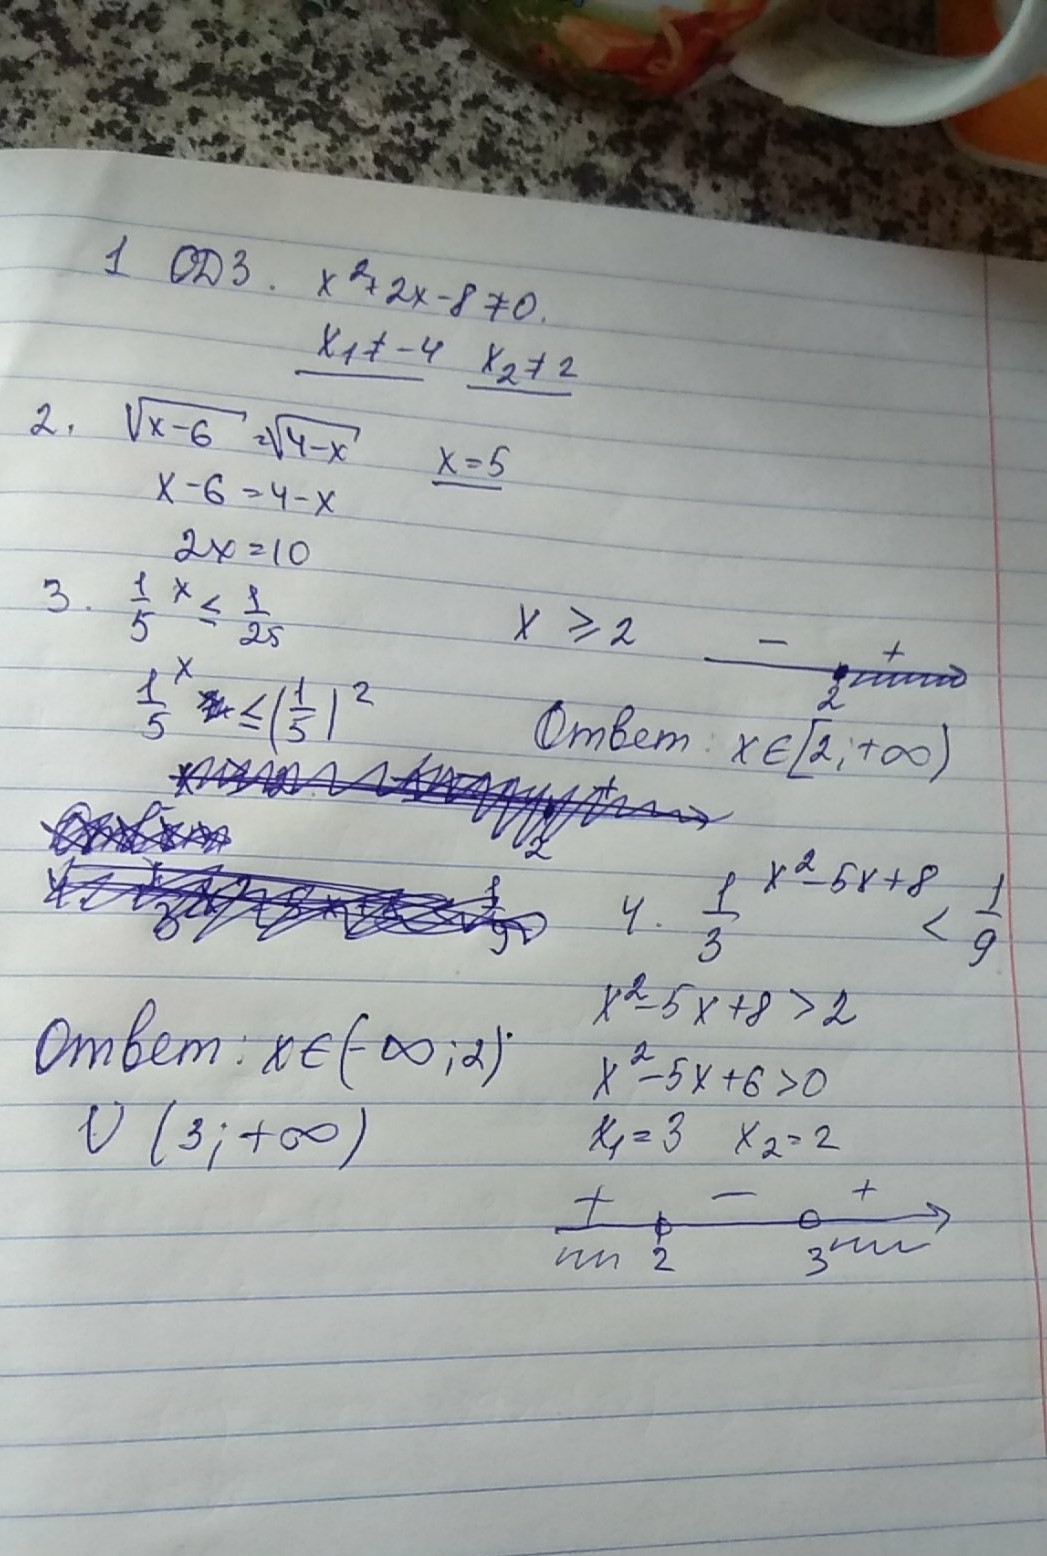 1 ОДЗ. x²+2x-8≠0.
x₁≠-4 x₂≠2
2. √x-6 = √4-x
x-6=4-x
2x=10
x=5
3. 1/5 ^x ≤ 1/25
1/5 ^x ≤ (1/5)²
x ≥ 2
- +
2
Ответ: x∈[2;+∞)
4. 1/3 ^x²-5x+8 < 1/9
x²-5x+8>2
x²-5x+6>0
x₁=3 x₂=2
+ - +
2 3
Ответ: x∈(-∞;2)
U (3;+∞)